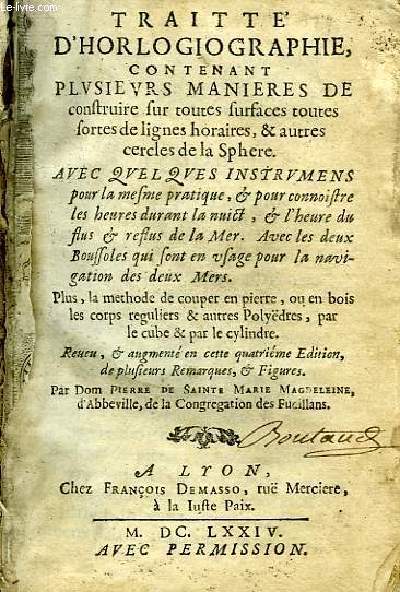 Le-livre.com
TRAITTE'
D'HORLOGIOGRAPHIE,
CONTENANT
PLVSIEVRS MANIERES DE
construire sur toutes surfaces toutes
sortes de lignes horaires, & autres
cercles de la Sphere.
AVEC QVELQVES INSTRVMENS
pour la mesme pratique, & pour connoistre
les heures durant la nuict, & l'heure du
flus & reflus de la Mer. Avec les deux
Boussoles qui sont en vsage pour la navi-
gation des deux Mers.
Plus, la methode de couper en pierre, ou en bois
les corps reguliers & autres Polyëdres, par
le cube & par le cylindre.
Reveu, & augmenté en cette quatriéme Edition,
de plusieurs Remarques, & Figures.
Par Dom PIERRE DE SAINTE MARIE MAGDELEINE,
d'Abbeville, de la Congregation des Fueillans.
Boutaud
A LYON,
Chez FRANÇOIS DEMASSO, ruë Merciere,
à la Iuste Paix.
M. DC. LXXIV.
AVEC PERMISSION.